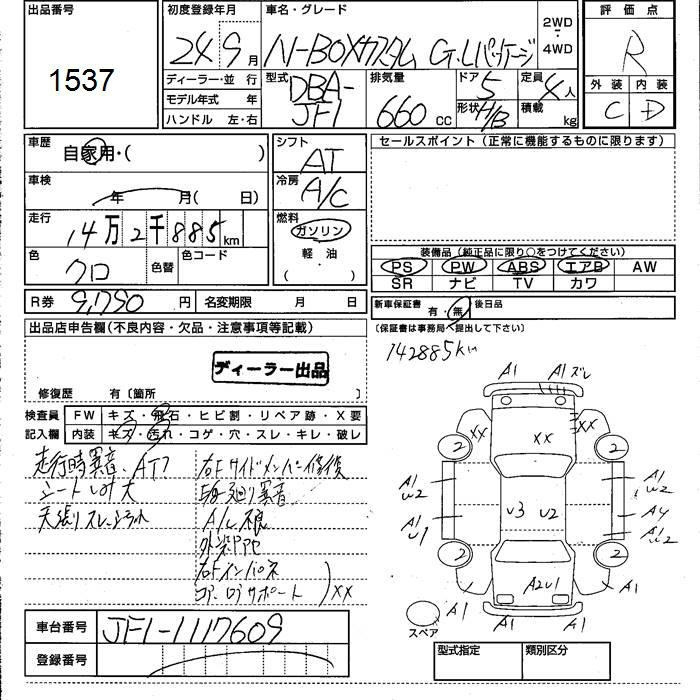 出品番号
1537
初度登録年月
24 9月
車名・グレード
N-BOXカスタム G・Lパッケージ
2WD
・
4WD
評価点
R
外装 内装
C D
ディーラー・並 行
モデル年式 年
ハンドル 左・右
型式
DBA-
JF1
排気量
660 cc
ドア 5
形状 H/B
定員 4人
積載 kg
車歴
自家用・( )
車検
年 月( 日)
走行
14万2千885km
色
クロ
色替
色コード
シフト
AT
冷房
A/C
燃料
ガソリン
軽油
( )
セールスポイント(正常に機能するものに限ります)
装備品(純正品に限り○をつけてください)
PS PW ABS エアB AW
SR ナビ TV カワ
R券 9,790円 名変期限 月 日
新車保証書 有・無 後日品
(保証書は事務局へ提出して下さい)
142885km
出品店申告欄(不良内容・欠品・注意事項等記載)
ディーラー出品
修復歴 有〔箇所 〕
検査員
記入欄
FW キズ・飛石・ヒビ割・リペア跡・X要
内装 キズ・汚れ・コゲ・穴・スレ・キレ・破レ
走行時異音、AT?
シート
天張りスレ
右Fサイドメンバー修復
異音
A/C不良
右Fインパネ
コア、ロアサポート XX
車台番号 JF1-1117609
登録番号
A1 A1 ズレ
XX XX XX
2 2
A1
U2
A1
U2
A1
U1
U3 U2
A4
A1
U2
2 2
A1 A2U1 A1
A1 A1 A1
スペア
型式指定 類別区分